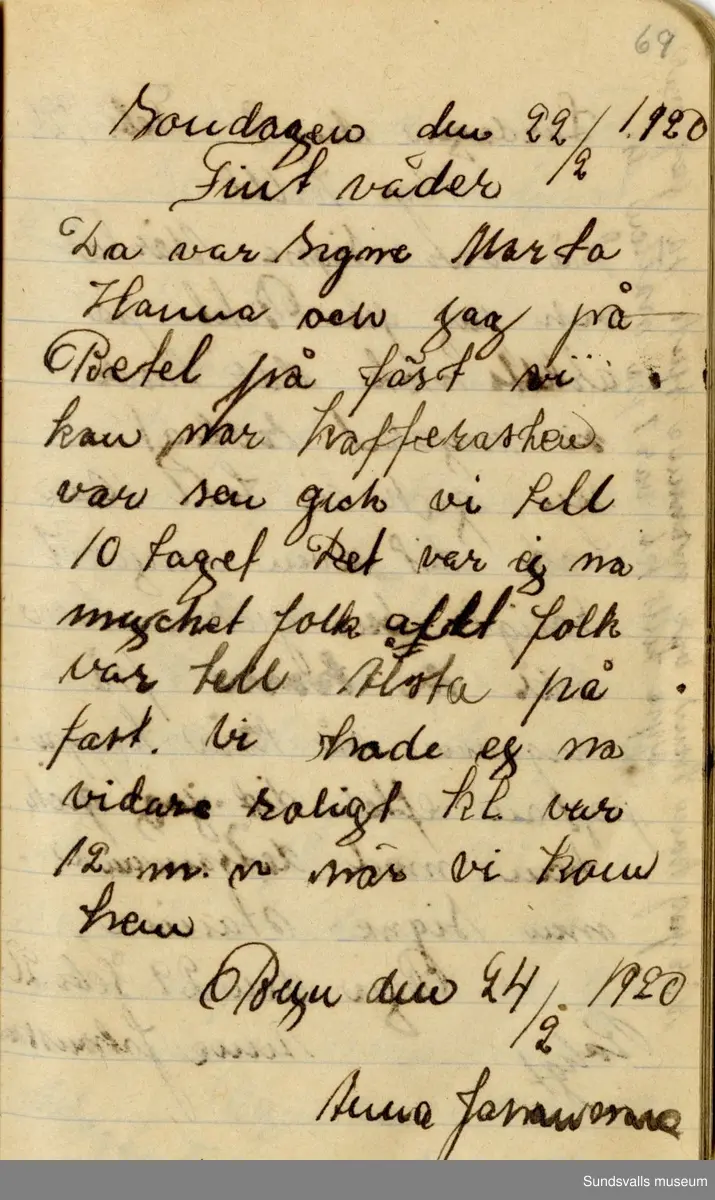 69
Sondagen den 22/2 1920
Fint väder
Da var Signe Marta
Hanna och jag på
Betel på fäst vi
kom när kafferasten
var sen gick vi till
10 taget Det var ej na
mycket folk folk
var till Alsta på
fast. Vi hade ej na
vidare roligt kl. var
12 m. n när vi kom
hem
Byn den 24/2 1920
Anna
Sundsvalls museum